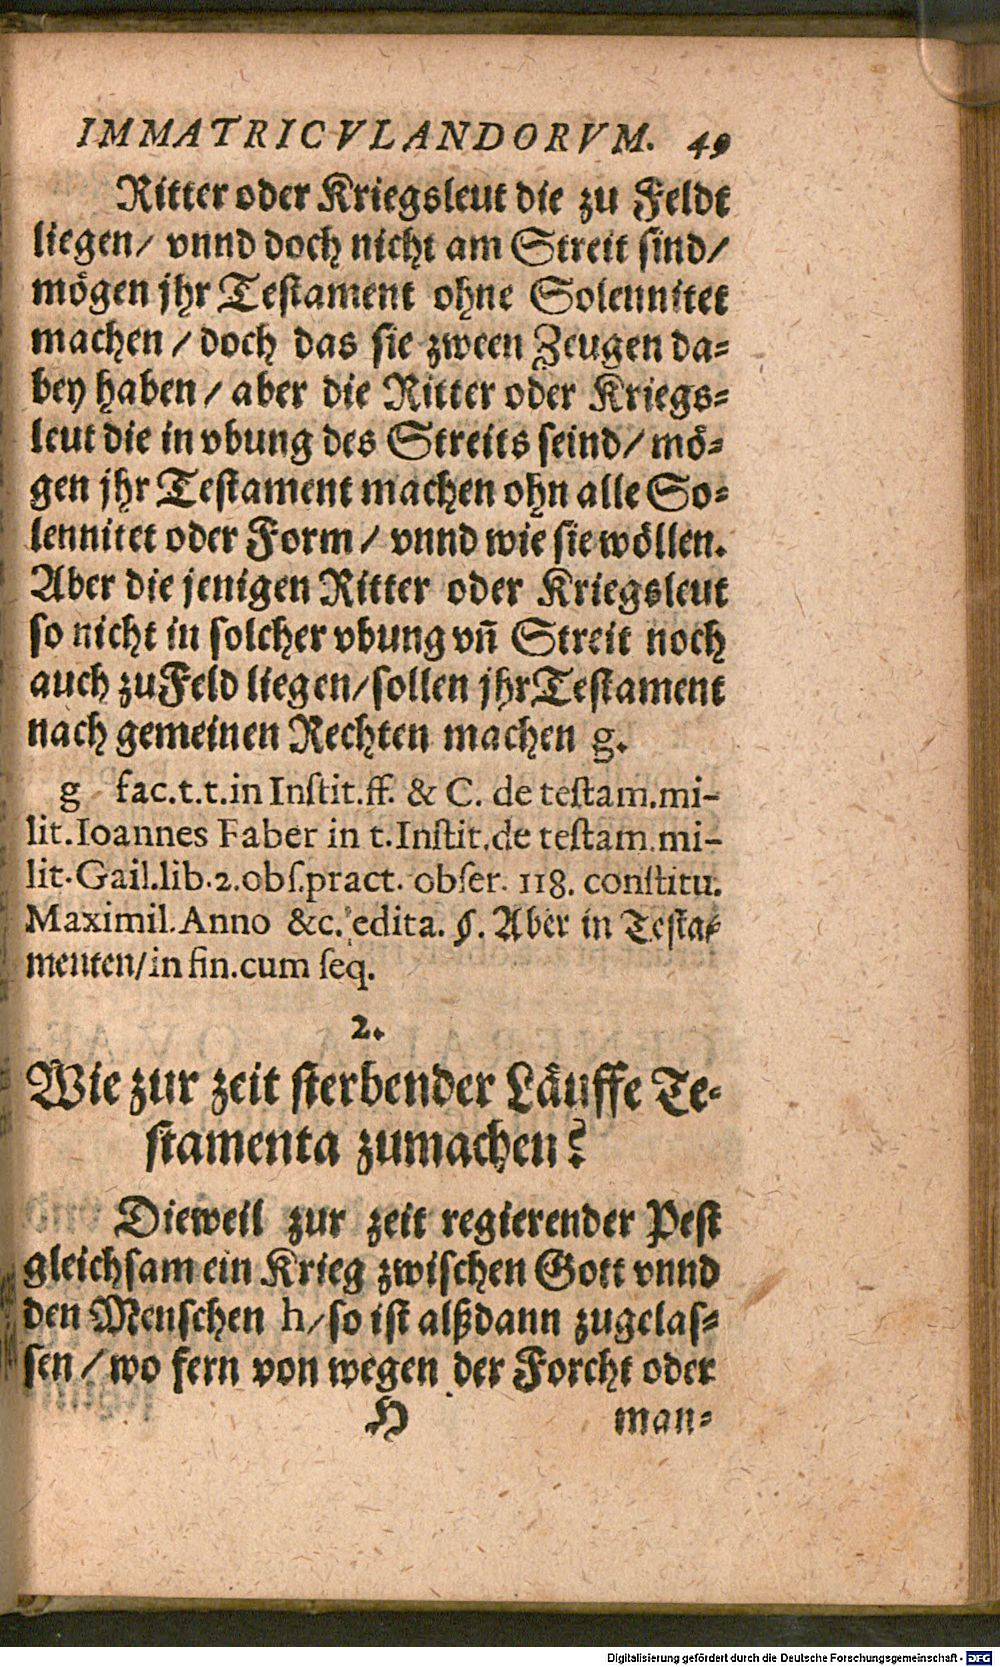 IMMATRICVLANDORVM. 49
Ritter oder Kriegsleut die zu Feldt
liegen/ vnnd doch nicht am Streit sind/
mögen jhr Testament ohne Solennitet
machen / doch das sie zween Zeugen da-
bey haben / aber die Ritter oder Kriegs-
leut die in vbung des Streits seind/ mö-
gen jhr Testament machen ohn alle So-
lennitet oder Form / vnnd wie sie wöllen.
Aber die jenigen Ritter oder Kriegsleut
so nicht in solcher vbung vñ Streit noch
auch zu Feld liegen/sollen jhr Testament
nach gemeinen Rechten machen g.
g fac.t.t.in Instit.ff. & C. de testam.mi-
lit.Ioannes Faber in t.Instit.de testam.mi-
lit.Gail.lib.2.obs.pract. obser. 118. constitu.
Maximil.Anno &c. edita. §. Aber in Testa-
menten/in fin.cum seq.
2.
Wie zur zeit sterbender Läuffe Te-
stamenta zumachen?
Dieweil zur zeit regierender Pest
gleichsam ein Krieg zwischen Gott vnnd
den Menschen h/so ist alßdann zugelas-
sen / wo fern von wegen der Forcht oder
H man-
Digitalisierung gefördert durch die Deutsche Forschungsgemeinschaft - DFG